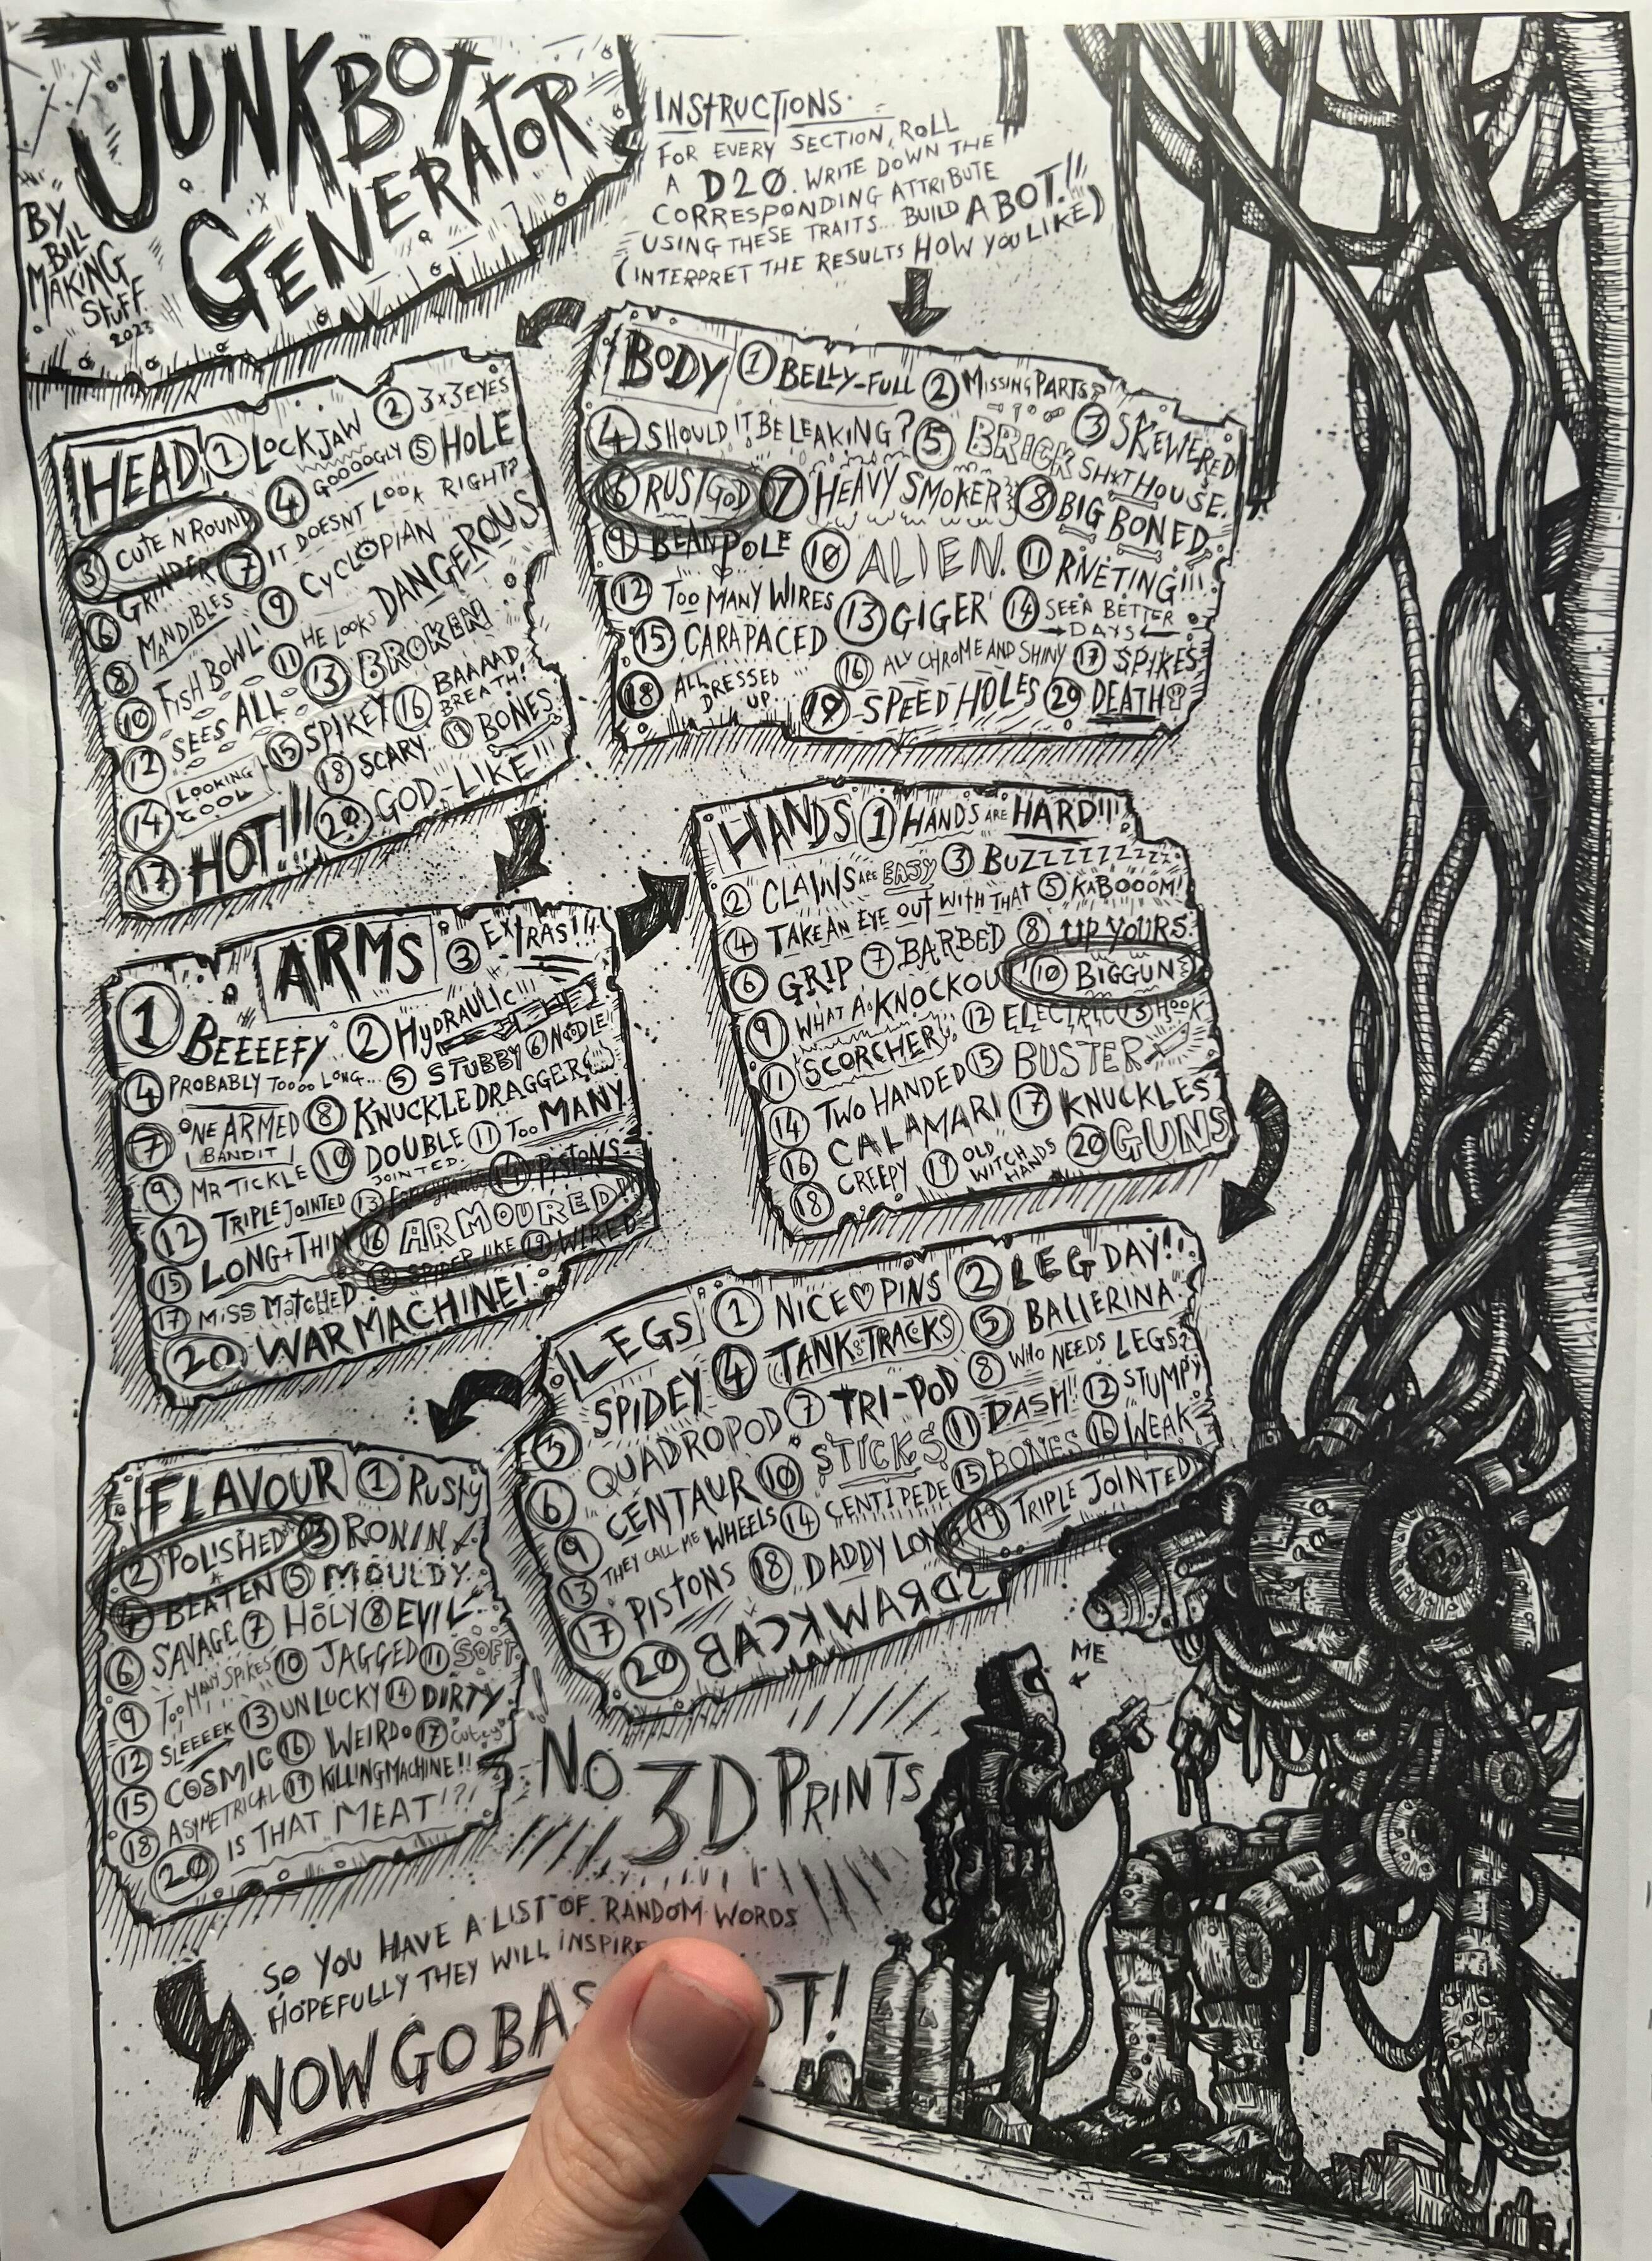 JUNKBOT
GENERATOR
BY
BILL
MAKING
STUFF
2023
INSTRUCTIONS.
FOR EVERY SECTION, ROLL
A D20. WRITE DOWN THE
CORRESPONDING ATTRIBUTE
USING THESE TRAITS... BUILD A BOT!!
(INTERPRET THE RESULTS HOW YOU LIKE)
BODY 1 BELLY-FULL 2 MISSING PARTS?
3 SKEWERED
4 SHOULD IT BE LEAKING? 5 BRICK SH*T HOUSE.
6 RUST GOD 7 HEAVY SMOKER 8 BIG BONED
9 BEANPOLE 10 ALIEN. 11 RIVETING!!!
12 TOO MANY WIRES 13 GIGER 14 SEEN BETTER
DAYS
15 CARAPACED 16 ALL CHROME AND SHINY 17 SPIKES
18 ALL DRESSED UP 19 SPEED HOLES 20 DEATH
HEAD 1 LOCKJAW 2 3x3 EYES
3 CUTE 'N ROUND 4 GOOOGLY 5 HOLE
6 GRINDER 7 IT DOESNT LOOK RIGHT?
8 MANDIBLES 9 CYCLOPIAN
10 FISH BOWL! 11 HE LOOKS DANGEROUS
12 SEES ALL 13 BROKEN
14 LOOKING COOL 15 SPIKEY 16 BAAAAD BREATH!
17 HOT!!! 18 SCARY 19 BONES
20 GOD-LIKE!!!
ARMS 3 EXTRAS!!!
1 BEEEEFY 2 HYDRAULIC
4 PROBABLY TOOOO LONG... 5 STUBBY 6 NOODLE
7 ONE ARMED BANDIT 8 KNUCKLEDRAGGER
9 MR TICKLE 10 DOUBLE JOINTED. 11 TOO MANY
12 TRIPLE JOINTED 13 14 PISTONS
15 LONG + THIN 16 ARMOURED!!
17 MISS MATCHED 18 SPIDER LIKE 19 WIRED
20 WAR MACHINE!
HANDS 1 HANDS ARE HARD!!!
2 CLAWS ARE EASY 3 BUZZZZZZZZZZ
4 TAKE AN EYE OUT WITH THAT 5 KABOOOM!
6 GRIP 7 BARBED 8 UP YOURS.
9 WHAT A KNOCKOUT 10 BIG GUNS
11 SCORCHER 12 ELECTRIC 13 HOOK
14 TWO HANDED 15 BUSTER
16 CALAMARI 17 KNUCKLES
18 CREEPY 19 OLD WITCH HANDS 20 GUNS
LEGS 1 NICE ♡ PINS 2 LEG DAY!!
3 SPIDEY 4 TANK TRACKS 5 BALLERINA
6 QUADROPOD 7 TRI-POD 8 WHO NEEDS LEGS?
9 CENTAUR 10 STICKS 11 DASH!! 12 STUMPY
13 THEY CALL ME WHEELS 14 CENTIPEDE 15 BONES 16 WEAK
17 PISTONS 18 DADDY LONG 19 TRIPLE JOINTED
20 BACKWARDS
FLAVOUR 1 RUSTY
2 POLISHED 3 RONIN
4 BEATEN 5 MOULDY
6 SAVAGE 7 HOLY 8 EVIL
9 TOO MANY SPIKES 10 JAGGED 11 SOFT
12 SLEEEEK 13 UNLUCKY 14 DIRTY
15 COSMIC 16 WEIRDO 17 CUTESY
18 ASYMETRICAL 19 KILLING MACHINE!!
20 IS THAT MEAT!?!
ME
NO 3D PRINTS
SO YOU HAVE A LIST OF RANDOM WORDS
HOPEFULLY THEY WILL INSPIRE
NOW GO BAS OT!